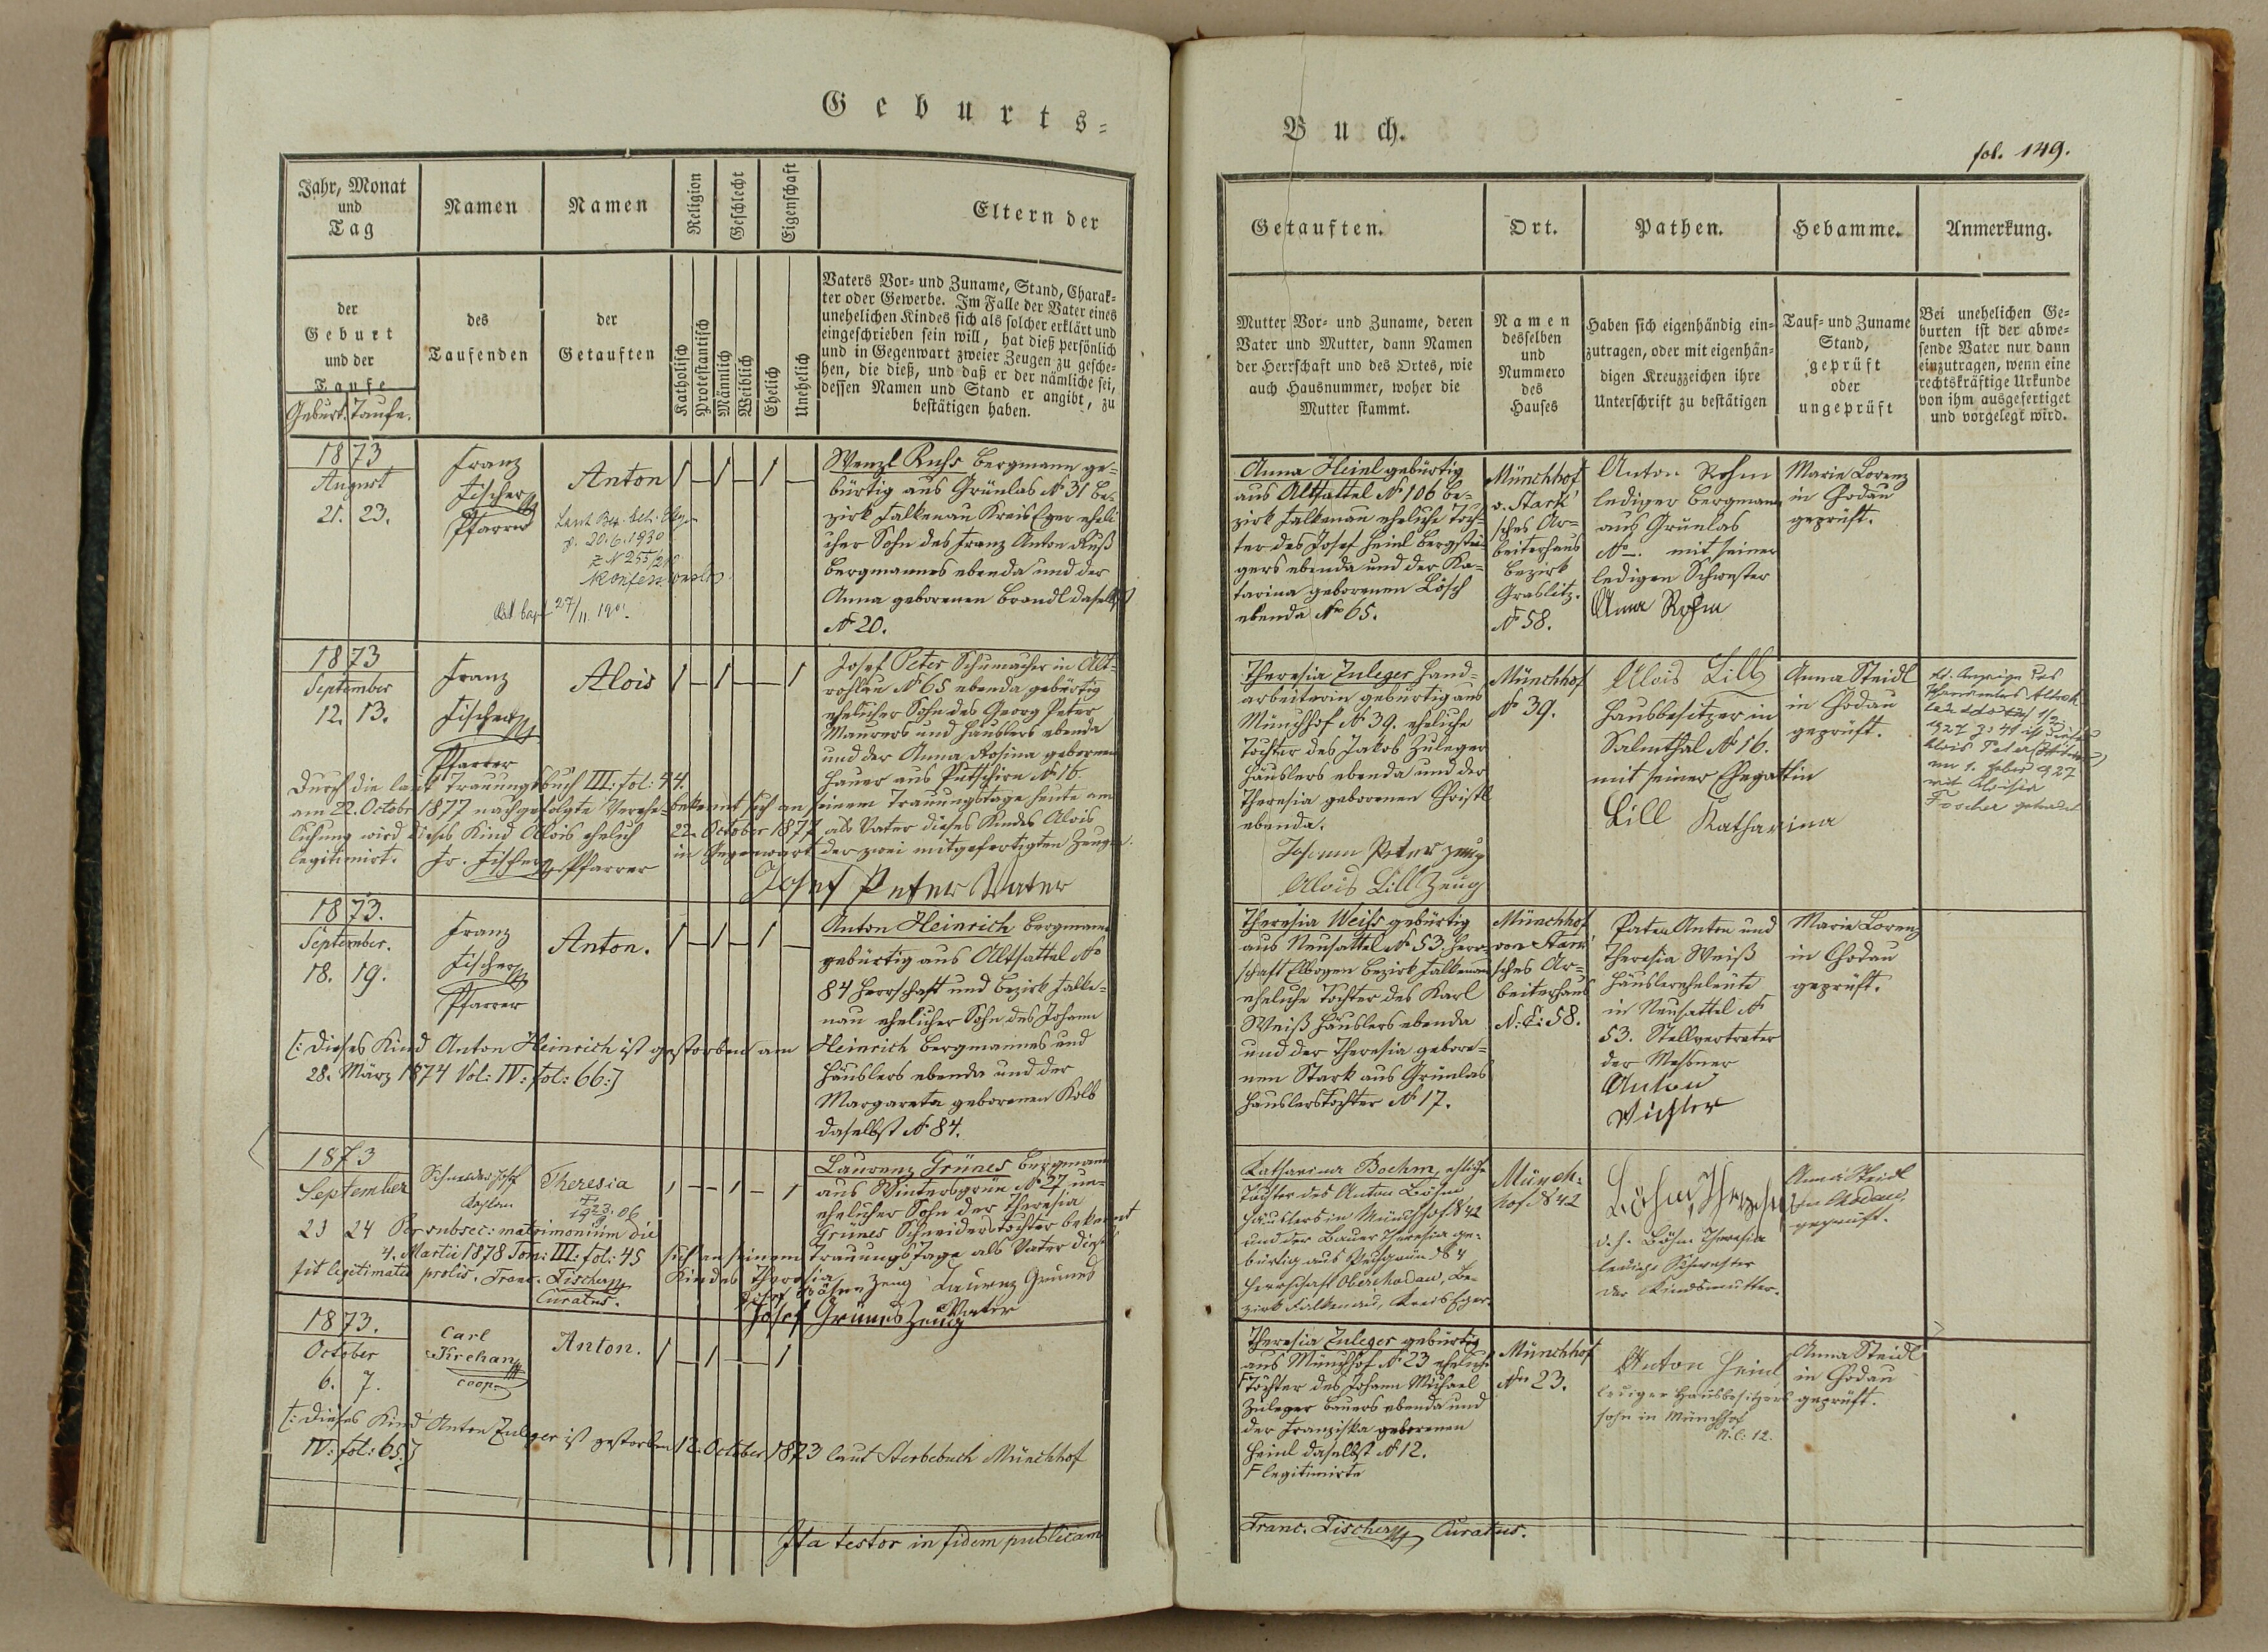 Geburts=
Jahr, Monat
und
Tag
Namen
Namen
Religion
Geschlecht
Eigenschaft
Eltern der
der
Geburt
und der
Taufe
Geburt. Taufe.
des
Taufenden
der
Getauften
Katholisch
Protestantisch
Männlich
Weiblich
Ehelich
Unehelich
Vaters Vor- und Zuname, Stand, Charak-
ter oder Gewerbe. Im Falle der Vater eines
unehelichen Kindes sich als solcher erklärt und
eingeschrieben sein will, hat dieß persönlich
und in Gegenwart zweier Zeugen zu gesche-
hen, die dieß, und daß er der nämliche sei,
dessen Namen und Stand er angibt, zu
bestätigen haben.
1873
August
21. 23.
Franz
Fischer
Pfarrer
Anton
20.6.1930
27/11 19
Wenzl Ruhs Bergmann ge-
bürtig aus Grünlas № 31 Be-
zirk Falkenau Kreis Eger eheli-
cher Sohn des Franz Anton Ruß
Bergmannes ebenda und der
Anna geborenen Brandl daselbst
№ 20.
1873
September
12. 13.
Franz
Fischer
Pfarrer
Alois
Josef Peter Schumacher in Alt-
rohlau № 65 ebenda gebürtig
ehelicher Sohn des Georg Peter
Maurers und Häuslers ebenda
und der Anna Rosina geborenen
Hauer aus Putschirn № 16.
Durch die laut Trauungsbuch III: fol: 44.
am 22. October 1877 nachgefolgte Vereh-
lichung wird dieses Kind Alois ehelich
legitimirt. Fr. Fischer Pfarrer
bekennt sich an seinem Trauungstage heute am
22. October 1877 als Vater dieses Kindes Alois
in Gegenwart der zwei mitgefertigten Zeugen.
Josef Peter Vater
1873.
September.
18. 19.
Franz
Fischer
Pfarrer
Anton.
Anton Heinrich Bergmann
gebürtig aus Altsattel №
84 Herrschaft und Bezirk Falke-
nau ehelicher Sohn des Johann
Heinrich Bergmannes und
Häuslers ebenda und der
Margareta geborenen Kolb
daselbst № 84.
[: Dieses Kind Anton Heinrich ist gestorben am
28. März 1874 Vol: IV: fol: 66:]
1873
September
23 24
Schneider Josef
Kaplan
Theresia
Laurenz Grünes Bergmann
aus Wintersgrün № 27 un-
ehelicher Sohn der Theresia
Grünes Schneiderstochter bekennt
sich an seinem Trauungstage als Vater dieses
Kindes Theresia
Per subsec: matrimonium die
4. Martii 1878 Tom: III: fol: 45
fit legitimatio prolis. Franc. Fischer
Curatus.
Zeug Laurenz Grünes
Vater
Josef Grünes Zeug
1873.
October
6. 7.
Carl
Krehan
coop.
Anton.
[: Dieses Kind Anton Zuleger ist gestorben 12. October 1873 laut Sterbebuch Münchhof
IV: fol: 65:]
Ita testor in fidem publicam
Buch.
fol. 149.
Getauften.
Ort.
Pathen.
Hebamme.
Anmerkung.
Mutter Vor- und Zuname, deren
Vater und Mutter, dann Namen
der Herrschaft und des Ortes, wie
auch Hausnummer, woher die
Mutter stammt.
Namen
desselben
und
Nummero
des
Hauses
Haben sich eigenhändig ein-
zutragen, oder mit eigenhän-
digen Kreuzzeichen ihre
Unterschrift zu bestätigen
Tauf- und Zuname
Stand,
geprüft
oder
ungeprüft
Bei unehelichen Ge-
burten ist der abwe-
sende Vater nur dann
einzutragen, wenn eine
rechtskräftige Urkunde
von ihm ausgefertiget
und vorgelegt wird.
Anna Heinl gebürtig
aus Altsattel № 106 Be-
zirk Falkenau eheliche Toch-
ter des Josef Heinl Bergstei-
gers ebenda und der Ka-
tarina geborenen Lösch
ebenda № 65.
Münchhof
v. Stark'
sches Ar-
beiterhaus
Bezirk
Graslitz.
№ 58.
Anton Rohm
lediger Bergmann
aus Grünlas
№ –. mit seiner
ledigen Schwester
Anna Rohm
Marie Lorenz
in Chodau
geprüft.
Theresia Zuleger Hand-
arbeiterin gebürtig aus
Münchhof № 39. eheliche
Tochter des Jakob Zuleger
Häuslers ebenda und der
Theresia geborenen Christl
ebenda.
Johann Peter Zeug
Alois Lill Zeug
Münchhof
№ 39.
Alois Lill
Hausbesitzer in
Salmthal № 16.
mit seiner Ehegattin
Lill Katharina
Anna Steidl
in Chodau
geprüft.
Theresia Weiss gebürtig
aus Neusattel № 53. Herr-
schaft Elbogen Bezirk Falkenau
eheliche Tochter des Karl
Weiß Häuslers ebenda
und der Theresia gebore-
nen Stark aus Grünlas
Häuslerstochter № 17.
Münchhof
von Stark'
sches Ar-
beiterhaus
N: C: 58.
Paten Anton und
Theresia Weiß
Häuslereheleute
in Neusattel №
53. Stellvertreter
der Meßner
Anton
Marie Lorenz
in Chodau
geprüft.
Katharina Boehm, ehliche
Tochter des Anton Böhm
Häuslers in Münchhof № 42
und der Bauer Theresia ge-
bürtig aus Pechgrün № 4
Herrschaft Oberchodau, Be-
zirk Falkenau, Kreis Eger.
Münch-
hof № 42
Böhm, Theresia
d. h. Böhm Theresia
ledige Schwester
der Kindsmutter.
Anna Steidl
in Chodau,
geprüft.
Theresia Zuleger gebürtig
aus Münchhof № 23 eheliche
Tochter des Johann Michael
Zuleger Bauers ebenda und
der Franziska geborenen
Heinl daselbst № 12.
F legitimirte
Münchhof
№ 23.
Anton Heinl
lediger Hausbesitzers
sohn in Münchhof
N. C: 12.
Anna Steidl
in Chodau
geprüft.
Franc. Fischer Curatus.